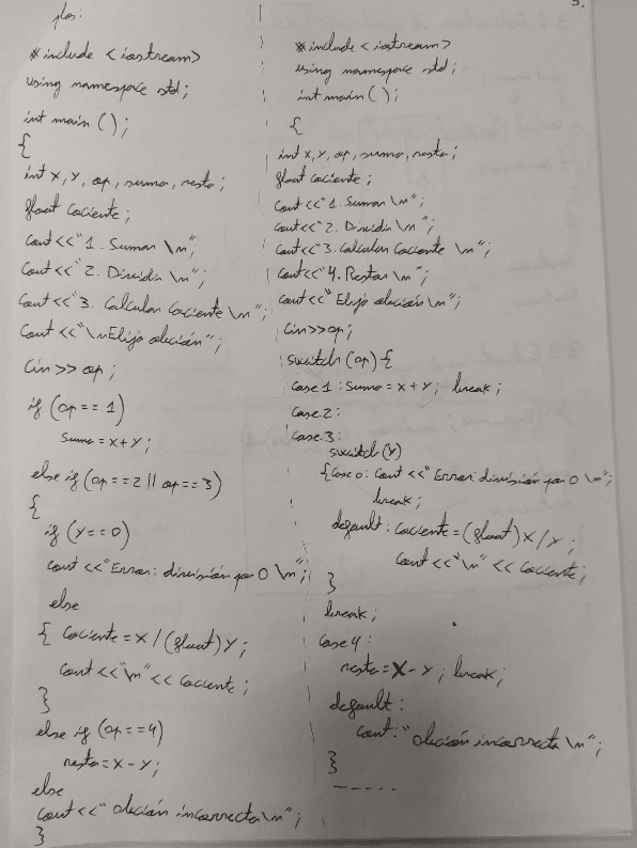 plos:
# include <iostream>
using namespace std;
int main ();
{
int x, y, op, suma, resta;
float cociente;
cout<<"1. Sumar \n";
cout<<"2. Dividir \n";
cout<<"3. Calcular cociente \n";
cout<<"\nElija opción";
cin>> op;
if (op == 1)
suma = x+y;
else if (op==2 || op==3)
{
if (y==0)
cout<<"Error: división por 0 \n";
else
{ cociente = x / (float) y;
cout<<"\n"<< cociente;
}
else if (op==4)
resta = x-y;
else
cout<<" opción incorrecta\n";
}
5.
# include <iostream>
using namespace std;
int main ();
{
int x, y, op, suma, resta;
float cociente;
cout<<"1. Sumar \n";
cout<<"2. Dividir \n";
cout<<"3. Calcular cociente \n";
cout<<"4. Restar \n";
cout<<" Elija opción \n";
cin>>op;
switch (op) {
case 1 : suma = x+y; break;
case 2:
case 3:
switch (y)
{ case 0: cout<<" Error: división por 0 \n";
break;
default: cociente = (float) x / y;
cout<<"\n"<< cociente;
}
break;
case 4:
resta = x-y; break;
default:
cout:" opción incorrecta \n";
}
-----